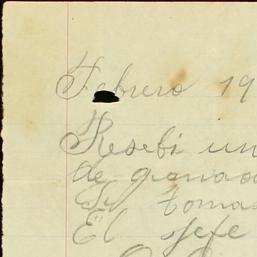 Febrero 19
Resebi un
de ganado
Sr tomas
El Jefe